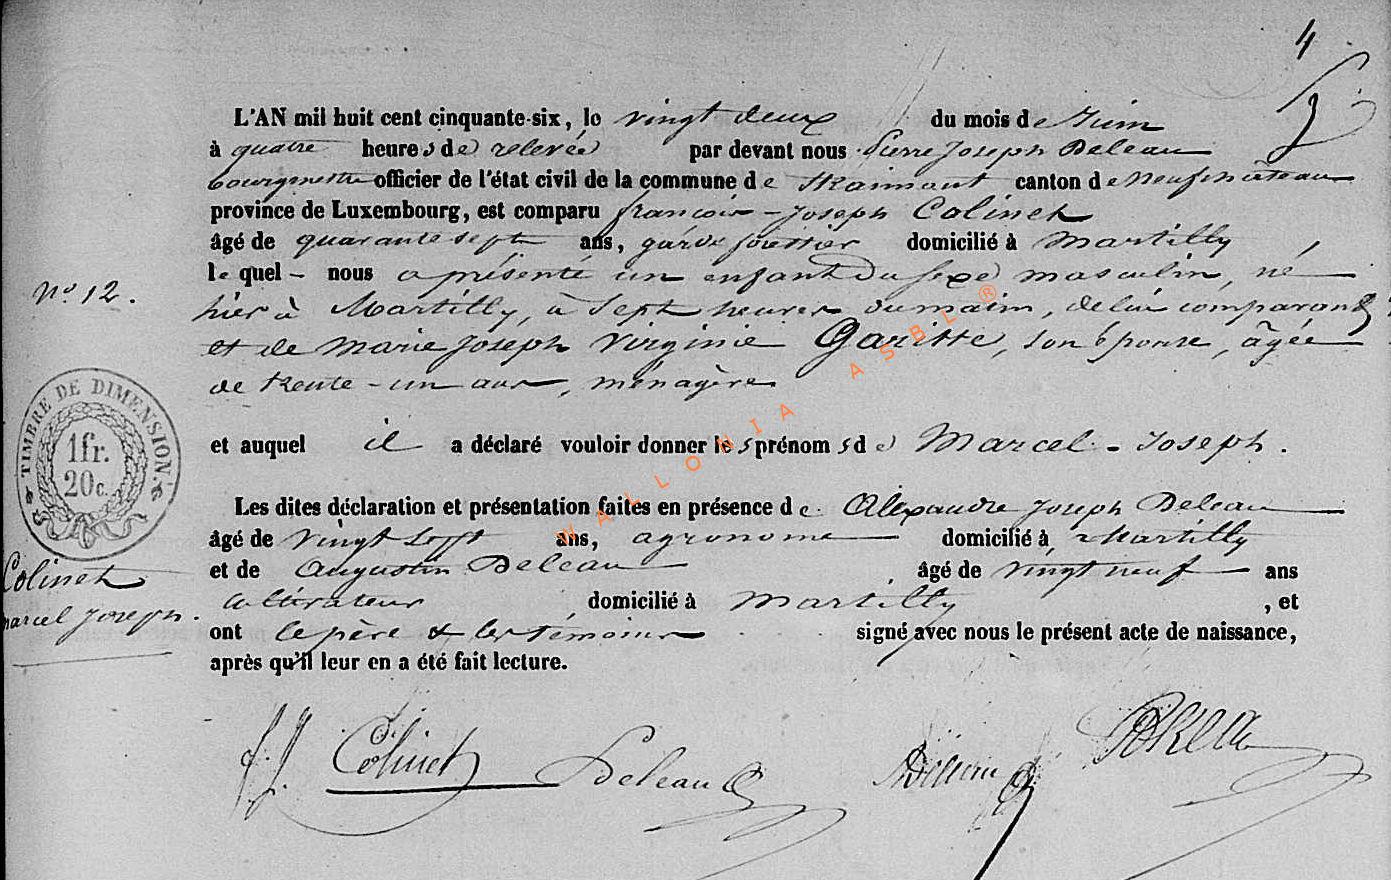 4
L'AN mil huit cent cinquante-six, le vingt deux du mois de Juin
à quatre heures de relevée par devant nous Pierre Joseph Deleau
bourgmestre officier de l'état civil de la commune de Straimont canton de Neufchâteau
province de Luxembourg, est comparu françois-Joseph Colinet
âgé de quarante sept ans, garde forestier domicilié à Martilly,
lequel - nous a présenté un enfant du sexe masculin, né
N° 12.
hier à Martilly, à sept heures du matin, de lui comparant
et de Marie Joseph Virginie Garitte, son épouse, âgée
de trente-un ans, ménagère
TIMBRE DE DIMENSION.
1 fr.
20 c.
et auquel il a déclaré vouloir donner les prénoms de Marcel-Joseph.
Les dites déclaration et présentation faites en présence de Alexandre Joseph Deleau
âgé de vingt sept ans, agronome domicilié à Martilly
et de Augustin Deleau âgé de vingt neuf ans
Colinet
Marcel Joseph.
cultivateur domicilié à Martilly, et
ont le père & les témoins signé avec nous le présent acte de naissance,
après qu'il leur en a été fait lecture.
f. J. Colinet Deleau
WALLONIA ASBL ®